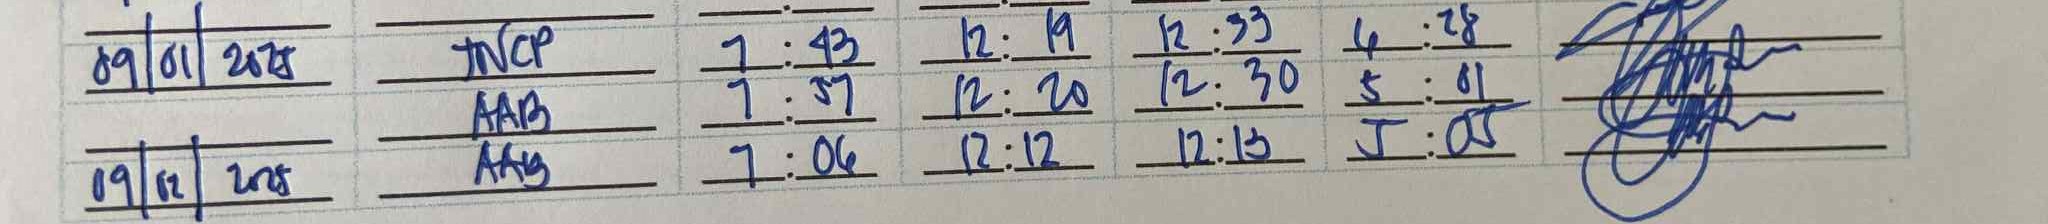 09/01/2025 JNCP 7:43 12:19 12:33 4:28
AAB 7:57 12:20 12:30 5:01
09/02/2025 AAB 7:06 12:12 12:13 5:05